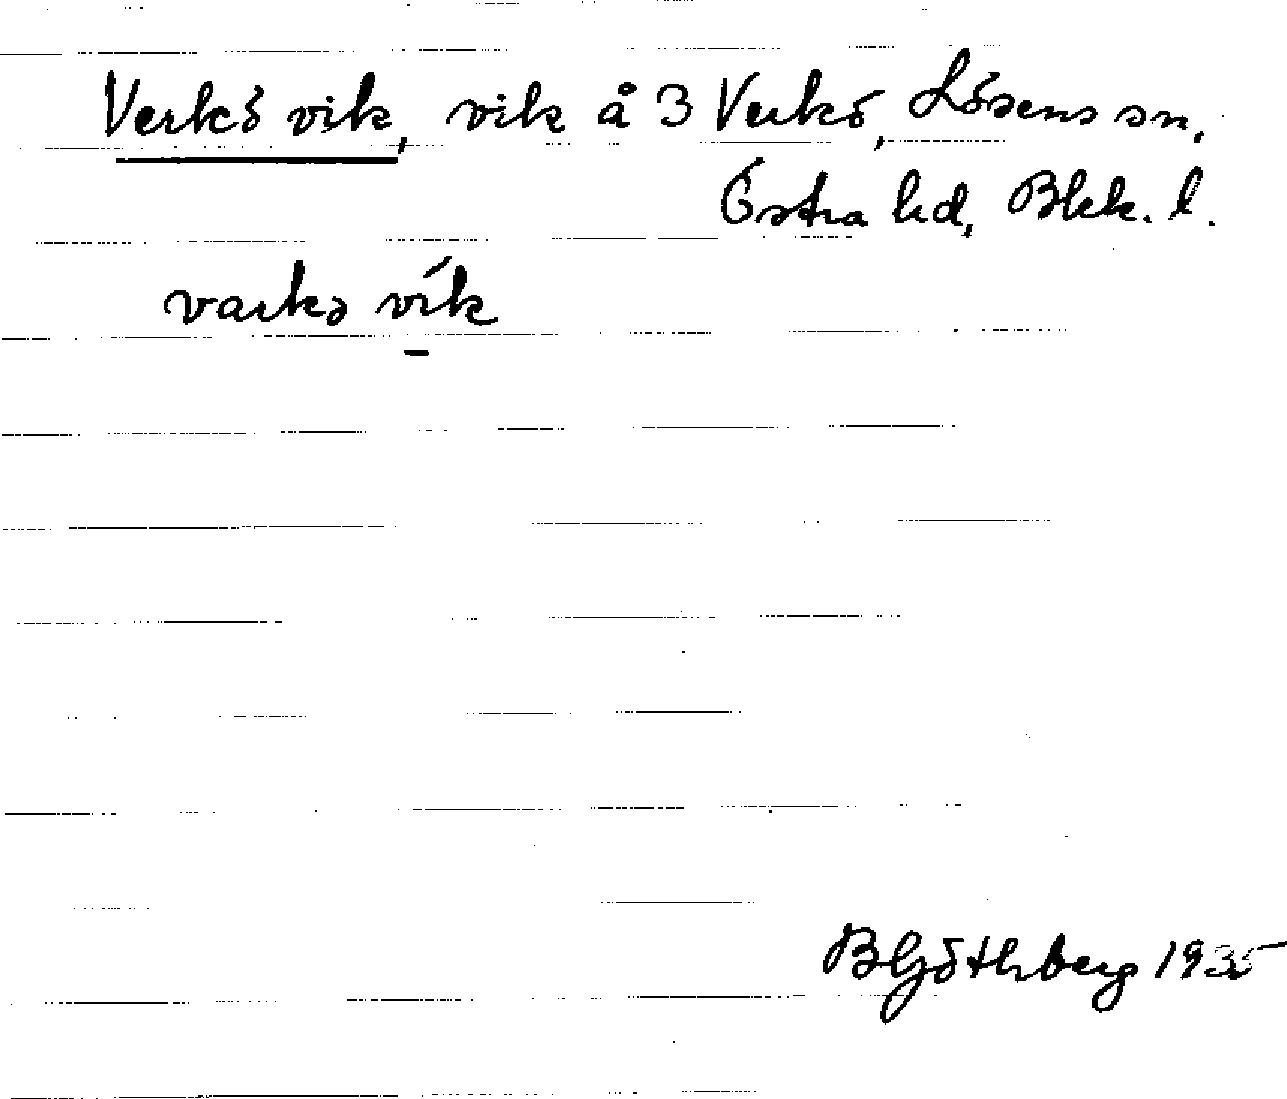 Verkö vik, vik å 3 Verkö, Lösens sn,
Östra hd, Blek. l.
varkə vík
B Göthberg 1935